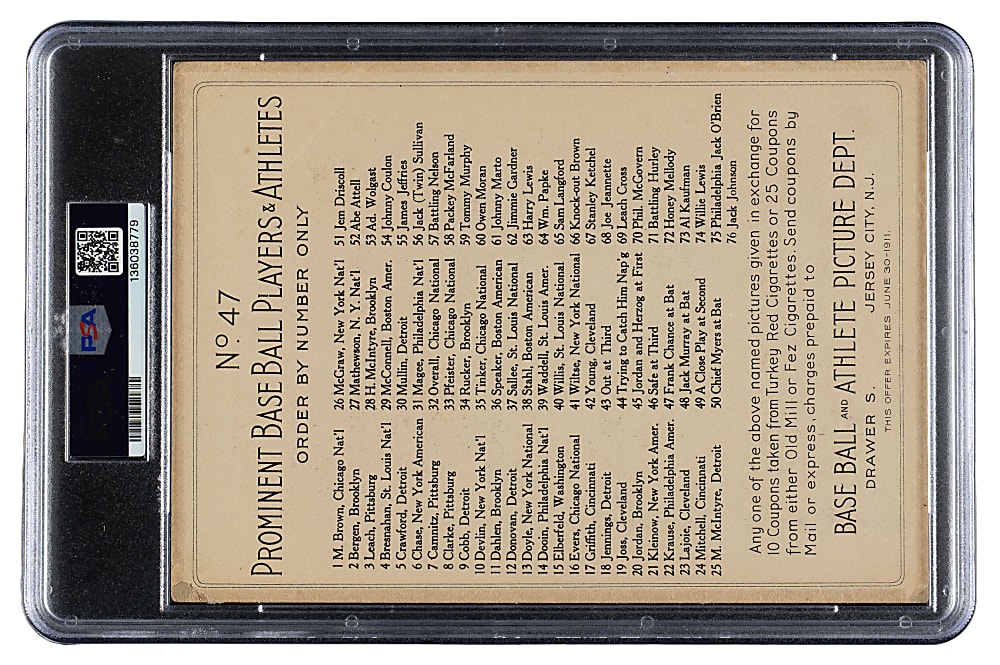 PSA
136038779
No. 47
PROMINENT BASE BALL PLAYERS & ATHLETES
ORDER BY NUMBER ONLY
1 M. Brown, Chicago Nat'l
2 Bergen, Brooklyn
3 Leach, Pittsburg
4 Bresnahan, St. Louis Nat'l
5 Crawford, Detroit
6 Chase, New York American
7 Camnitz, Pittsburg
8 Clarke, Pittsburg
9 Cobb, Detroit
10 Devlin, New York Nat'l
11 Dahlen, Brooklyn
12 Donovan, Detroit
13 Doyle, New York National
14 Dooin, Philadelphia Nat'l
15 Elberfeld, Washington
16 Evers, Chicago National
17 Griffith, Cincinnati
18 Jennings, Detroit
19 Joss, Cleveland
20 Jordan, Brooklyn
21 Kleinow, New York Amer.
22 Krause, Philadelphia Amer.
23 Lajoie, Cleveland
24 Mitchell, Cincinnati
25 M. McIntyre, Detroit
26 McGraw, New York Nat'l
27 Mathewson, N. Y. Nat'l
28 H. McIntyre, Brooklyn
29 McConnell, Boston Amer.
30 Mullin, Detroit
31 Magee, Philadelphia Nat'l
32 Overall, Chicago National
33 Pfeister, Chicago National
34 Rucker, Brooklyn
35 Tinker, Chicago National
36 Speaker, Boston American
37 Sallee, St. Louis National
38 Stahl, Boston American
39 Waddell, St. Louis Amer.
40 Willis, St. Louis National
41 Wiltse, New York National
42 Young, Cleveland
43 Out at Third
44 Trying to Catch Him Nap'g
45 Jordan and Herzog at First
46 Safe at Third
47 Frank Chance at Bat
48 Jack Murray at Bat
49 A Close Play at Second
50 Chief Myers at Bat
51 Jem Driscoll
52 Abe Attell
53 Ad. Wolgast
54 Johnny Coulon
55 James Jeffries
56 Jack (Twin) Sullivan
57 Battling Nelson
58 Packey McFarland
59 Tommy Murphy
60 Owen Moran
61 Johnny Marto
62 Jimmie Gardner
63 Harry Lewis
64 Wm. Papke
65 Sam Langford
66 Knock-out Brown
67 Stanley Ketchel
68 Joe Jeannette
69 Leach Cross
70 Phil. McGovern
71 Battling Hurley
72 Honey Mellody
73 Al Kaufman
74 Willie Lewis
75 Philadelphia Jack O'Brien
76 Jack Johnson
Any one of the above named pictures given in exchange for
10 Coupons taken from Turkey Red Cigarettes or 25 Coupons
from either Old Mill or Fez Cigarettes. Send coupons by
Mail or express, charges prepaid to
BASE BALL AND ATHLETE PICTURE DEPT.
DRAWER S. JERSEY CITY, N.J.
THIS OFFER EXPIRES JUNE 30-1911.